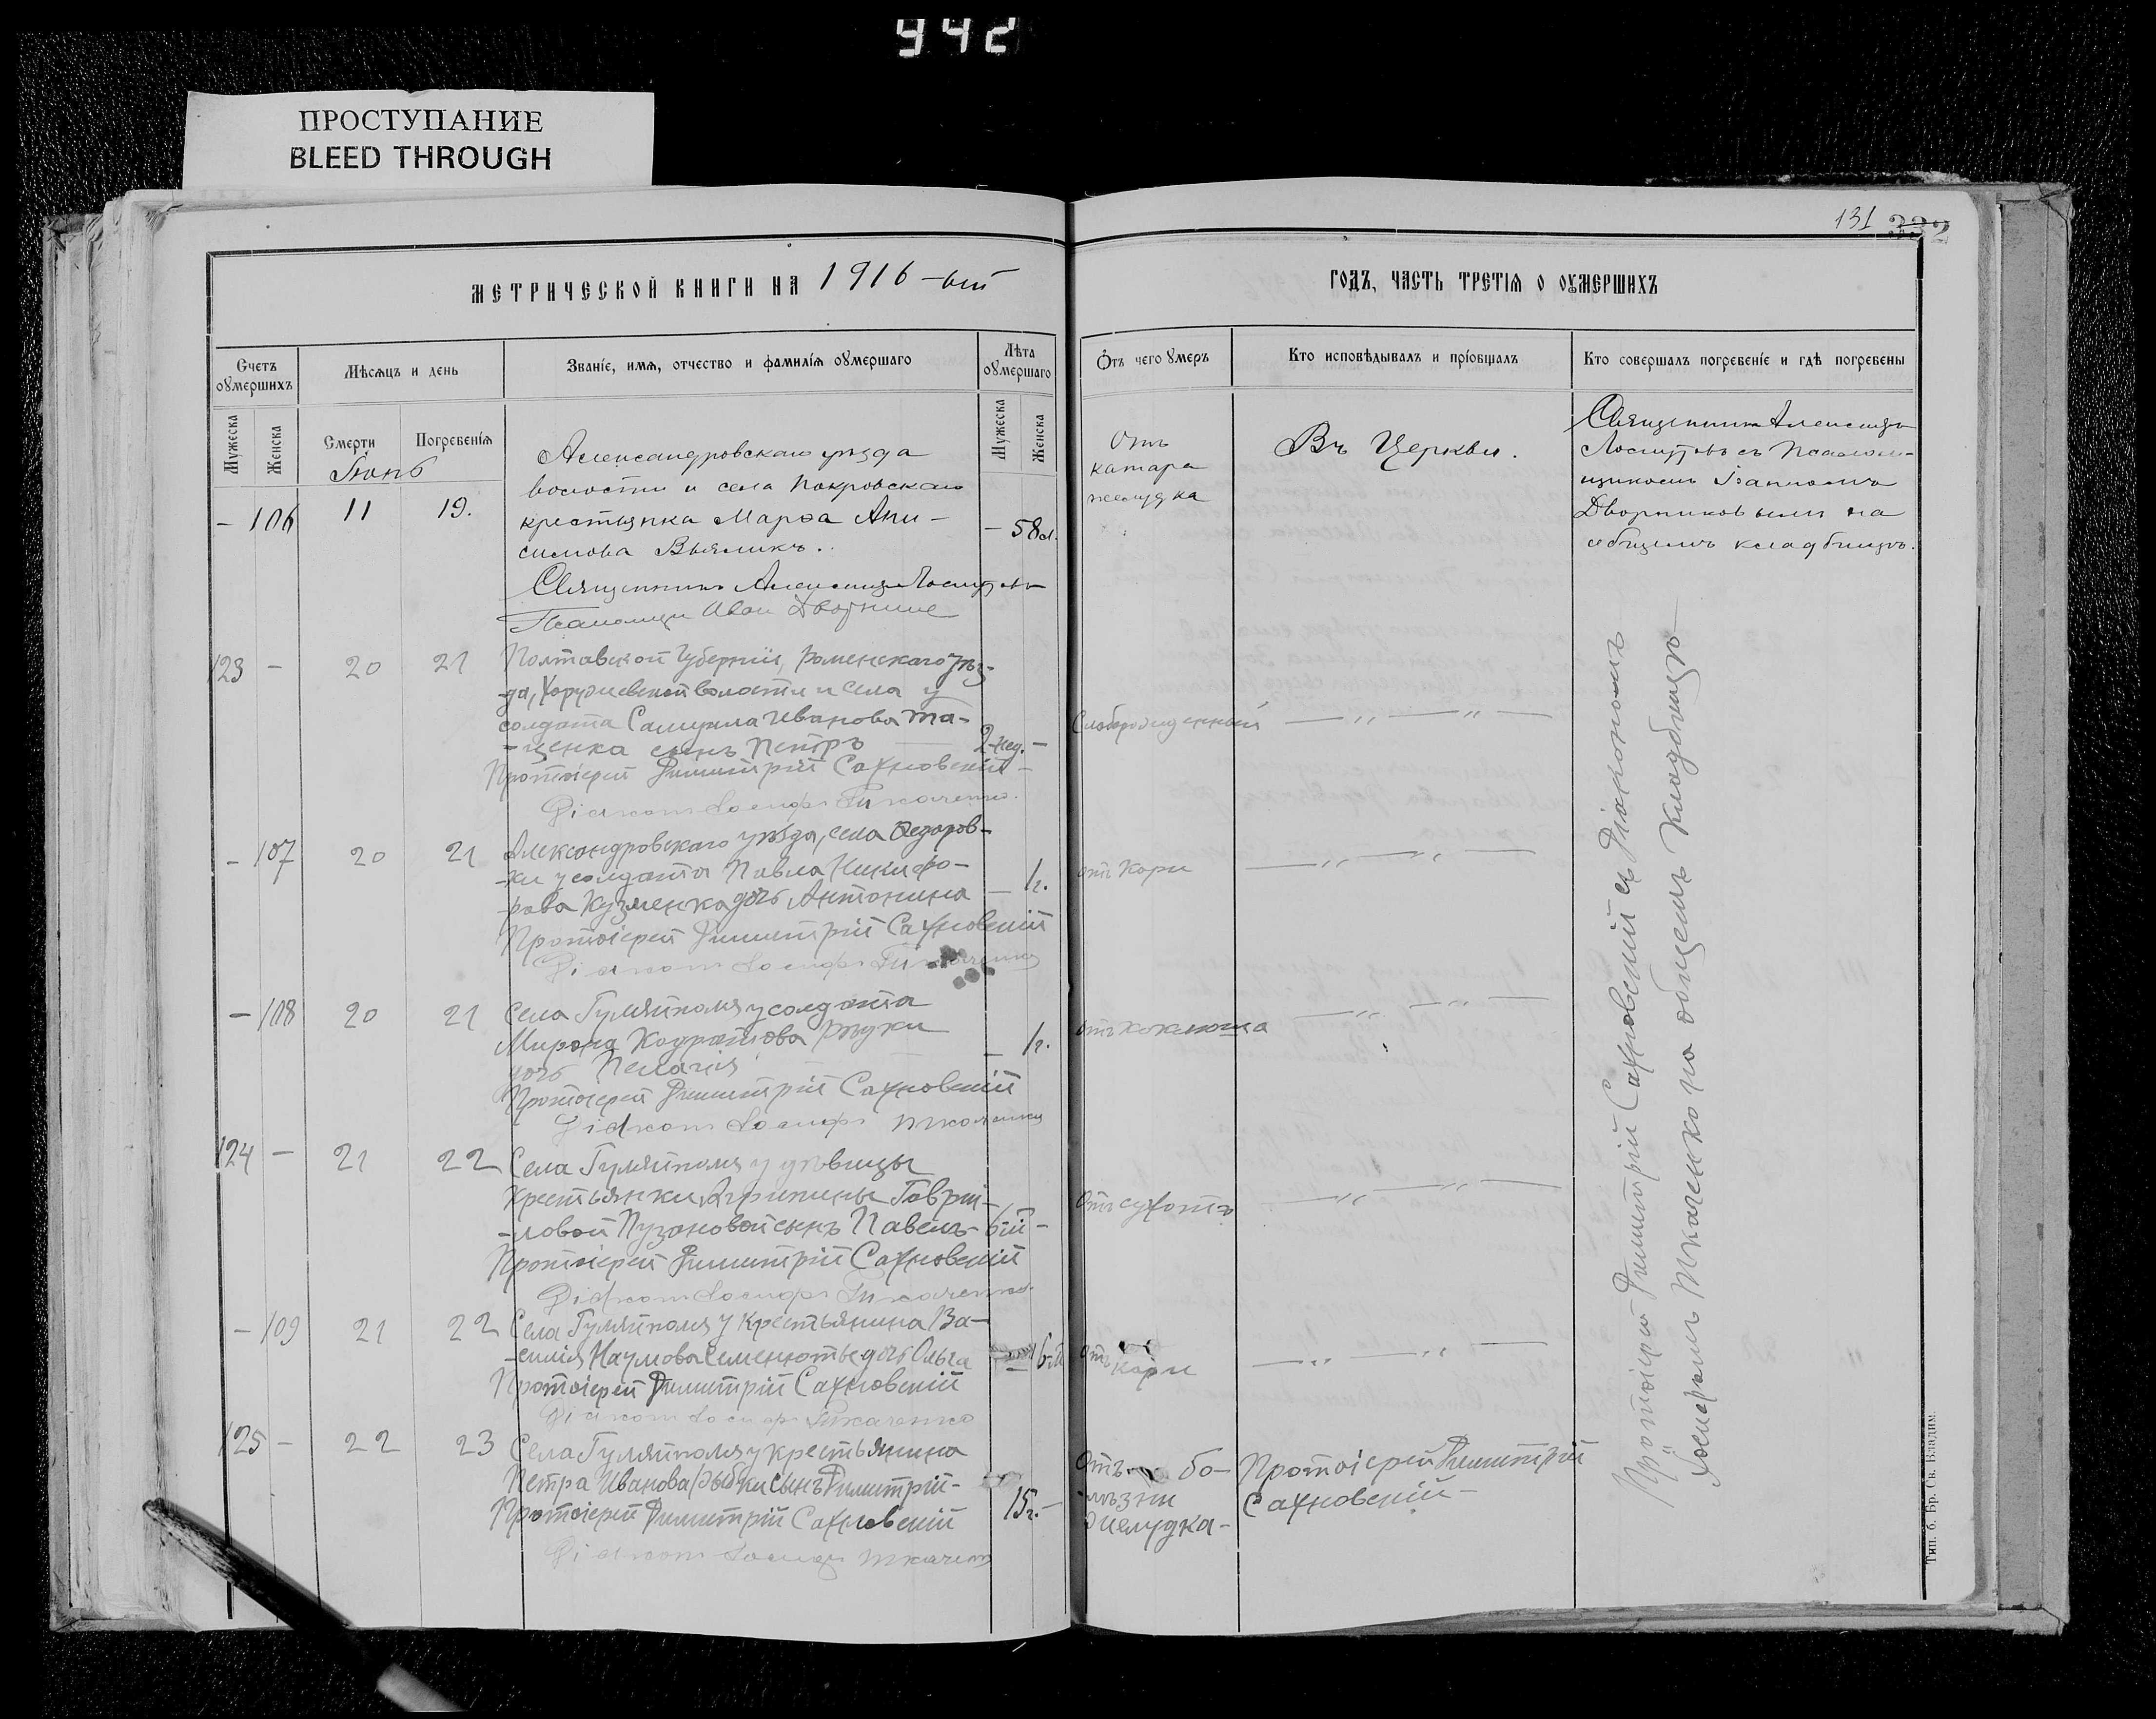 942
ПРОСТУПАНИЕ
BLEED THROUGH
131 332
МЕТРИЧЕСКОЙ КНИГИ НА 1916-ый
ГОДЪ, ЧАСТЬ ТРЕТІЯ О ОУМЕРШИХЪ
Счетъ оумершихъ
Мѣсяцъ и день
Званіе, имя, отчество и фамилія оумершаго
Лѣта оумершаго
Отъ чего умеръ
Кто исповѣдывалъ и пріобщалъ
Кто совершалъ погребеніе и гдѣ погребены
Мужеска
Женска
Смерти
Погребенія
Мужеска
Женска
Іюнь
- 106 11 19.
Александровскаго уѣзда
волости и села Покровскаго
крестьянка Марѳа Они-
симова
- 58 л.
Отъ
катара
желудка
Въ Церкви.
Священникъ Александръ
съ Псалом-
щикомъ Іоанномъ
Дворниковымъ на
общемъ кладбищѣ.
Священникъ Александръ
Псаломщикъ Иван
123 - 20 21
Полтавской Губерніи, Роменскаго уѣз-
-да, Хоружевской волости и села у
солдата Самуила Иванова Та-
-ценка сынъ Петръ
2 нед. -
Слаборожденный
Протоіерей Димитрій Сахновскій
Діаконъ Іосифъ Ткаченко.
- 107 20 21
Александровскаго уѣзда, села Федоров-
-ки у солдата Павла Никифо-
-рова Кузменка дочь Антонина
- 1 г.
отъ Кори
Протоіерей Димитрій Сахновскій
Діаконъ Іосифъ Ткаченко
- 108 20 21
Села Гуляйполя у солдата
Мирона Кодратова Рѣдки
дочь Пелагія
- 1 г.
отъ Коклюша
Протоіерей Димитрій Сахновскій
Діаконъ Іосифъ Ткаченко
124 - 21 22
Села Гуляйполя у дѣвицы
Крестьянки Агрипины Гаврі-
-ловой Пузановой сынъ Павелъ - 6 м -
Отъ сухотъ
Протоіерей Димитрій Сахновскій
Діаконъ Іосифъ Ткаченко.
- 109 21 22
Села Гуляйполя у крестьянина Ва-
-силія Наумова Семенюты дочь Ольга
6 м
Отъ
кори
Протоіерей Димитрій Сахновскій
Діаконъ Іосифъ Ткаченко
125 - 22 23
Села Гуляйполя у крестьянина
Петра Иванова сынъ Димитрій -
15 г. -
Отъ бо-
-лѣзни
желудка -
Протоіерей Димитрій
Сахновскій -
Протоіерей Димитрій Сахновскій
Діаконъ Іосифъ Ткаченко
Протоіерей Димитрій Сахновскій съ Діакономъ
Іосифомъ Ткаченко на общемъ Кладбищѣ
Тип. б. Бр. Св. Владим.